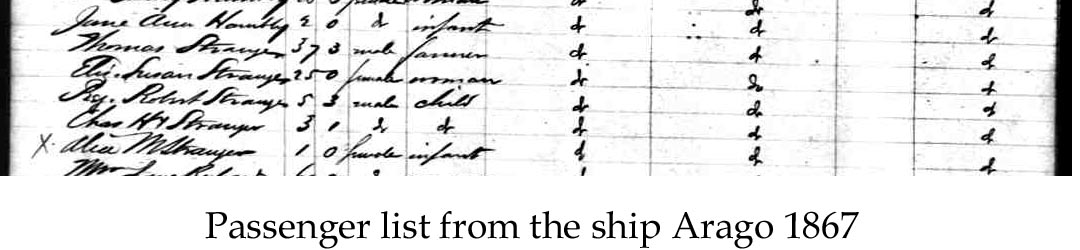 Jane Ann Hambly 2 0 do infant do do do
Thomas Stranger 37 3 male farmer do do do
Eliz. Susan Stranger 25 0 female woman do do do
Robert Stranger 5 3 male child do do do
Chas H Stranger 3 1 do do do do do
X Alice M Stranger 1 0 female infant do do do
Mrs
Passenger list from the ship Arago 1867